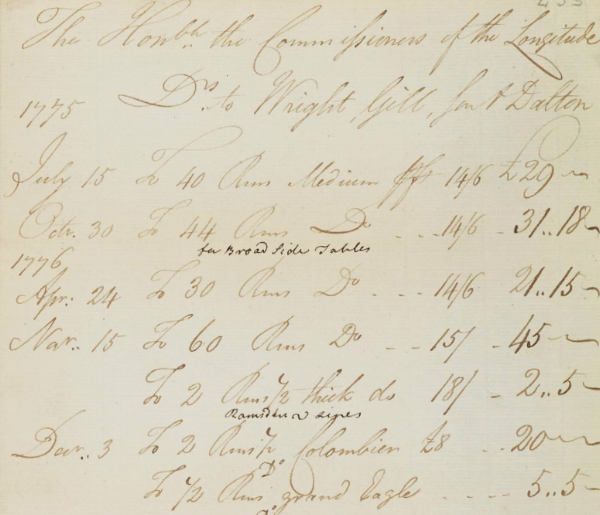 The Honble. the Commissioners of the Longitude
1775 Drs. to Wright, Gill, Son & Dalton
July 15 To 40 Rms Medium 14/6 £29 "
Octr. 30 To 44 Rms Do - - 14/6 - 31..18 -
for Broad Side Tables
1776
Apr: 24 To 30 Rms Do - - - 14/6 21..15 -
Nov.. 15 To 60 Rms Do - - 15/ - 45 -
To 2 Rms 1/2 thick do 18/ - 2..5 -
Ramsden's
Decr.. 3 To 2 Rms 1/2 Colombier £8 - - 20 -
Do
To 1/2 Rms grand Eagle - - - - 5..5 -